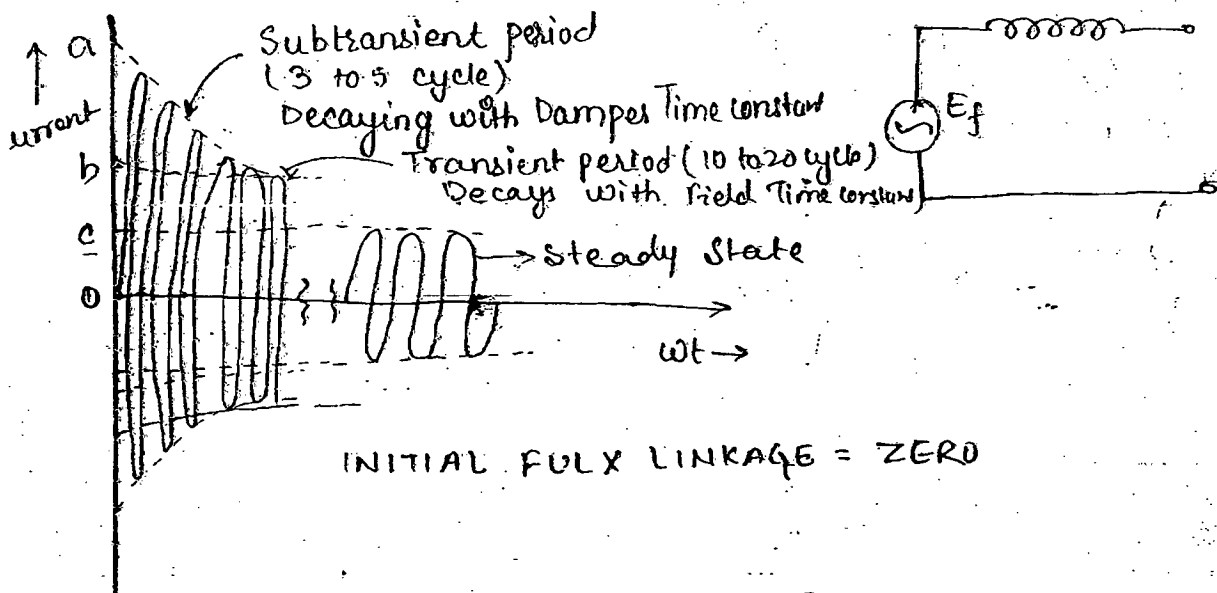 a
Subtransient period
(3 to 5 cycle)
Decaying with Damper Time constant
urrent
b
Transient period (10 to 20 cycle)
Decays with Field Time constant
E_f
c
→ Steady State
0
wt →
INITIAL FULX LINKAGE = ZERO